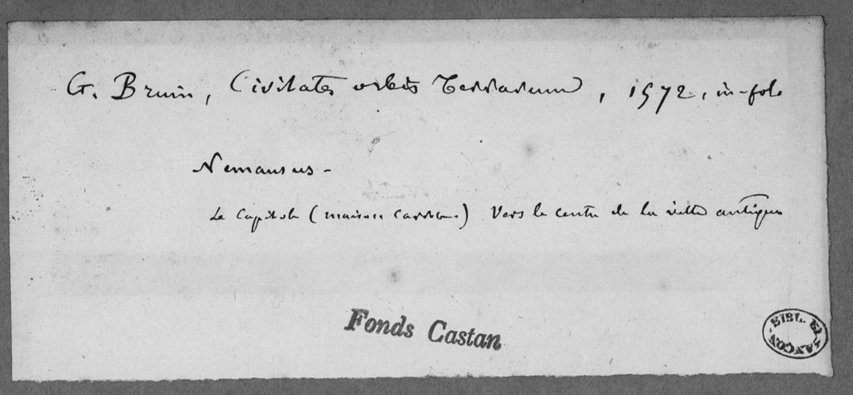 G. Bruin, Civitates orbis Terrarum, 1572, in-fol.
Nemausus -
Le Capitole (maison carrée.) Vers le centre de la ville antique
Fonds Castan